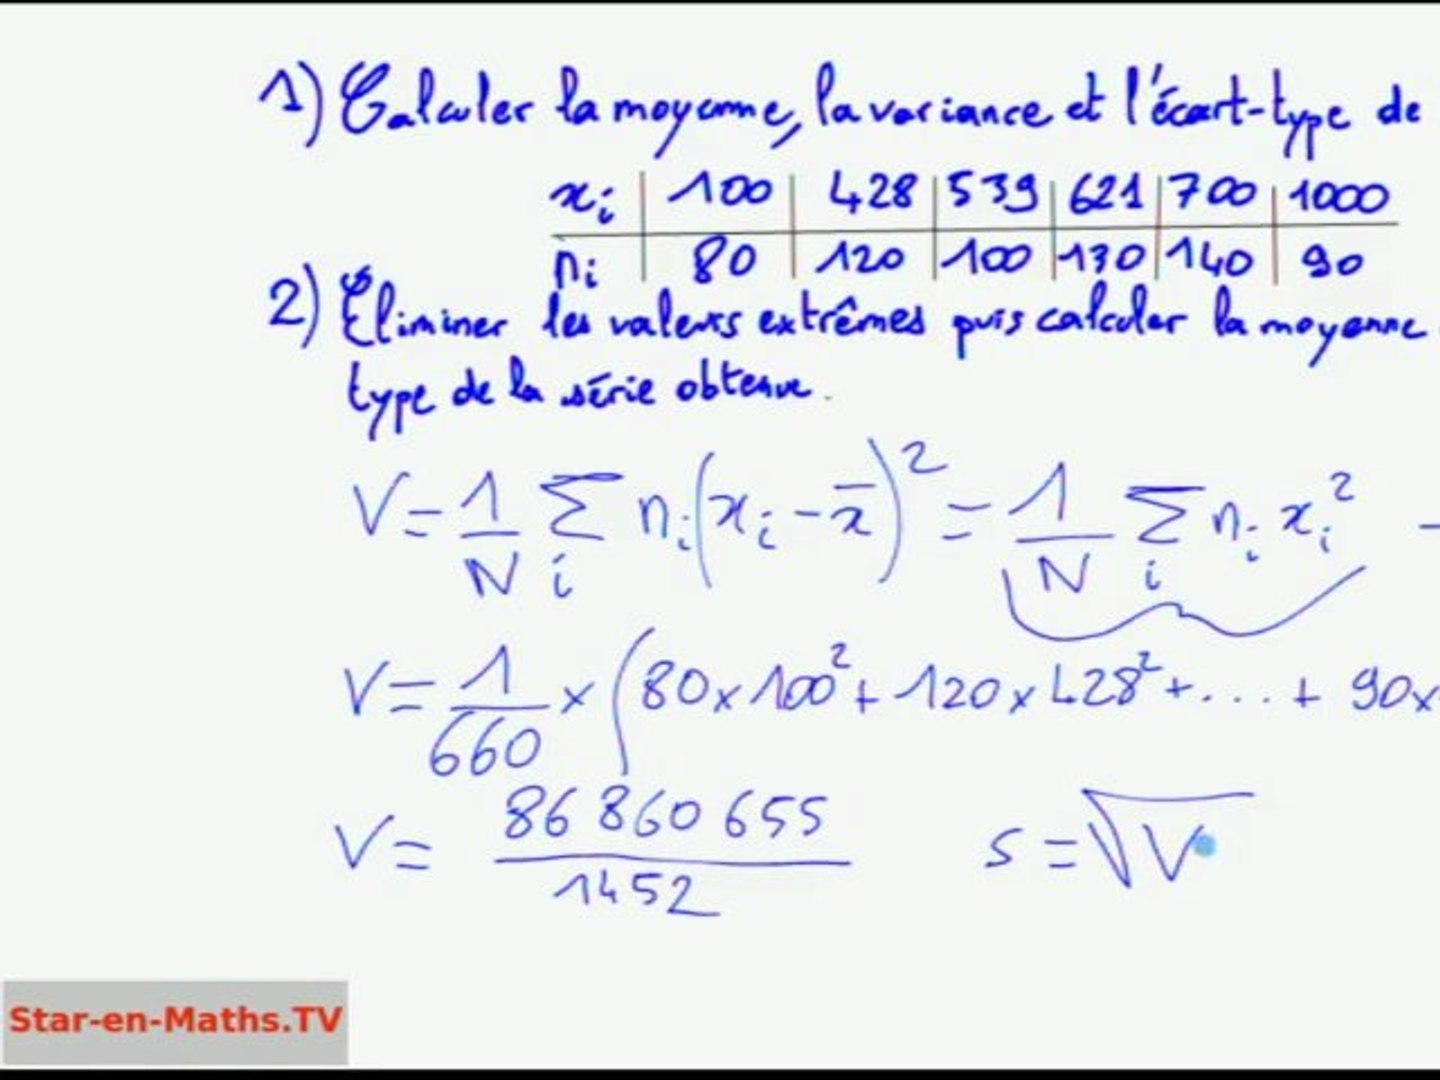 1) Calculer la moyenne, la variance et l'écart-type de
xi 100 428 539 621 700 1000
ni 80 120 100 130 140 90
2) Eliminer les valeurs extrêmes puis calculer la moyenne
type de la série obtenue.
V = 1/N Σi ni(xi - x̄)² = 1/N Σi ni xi² -
V = 1/660 × (80×100² + 120×428² + ... + 90×
V = 86 860 655 / 1452 s = √V
Star-en-Maths.TV